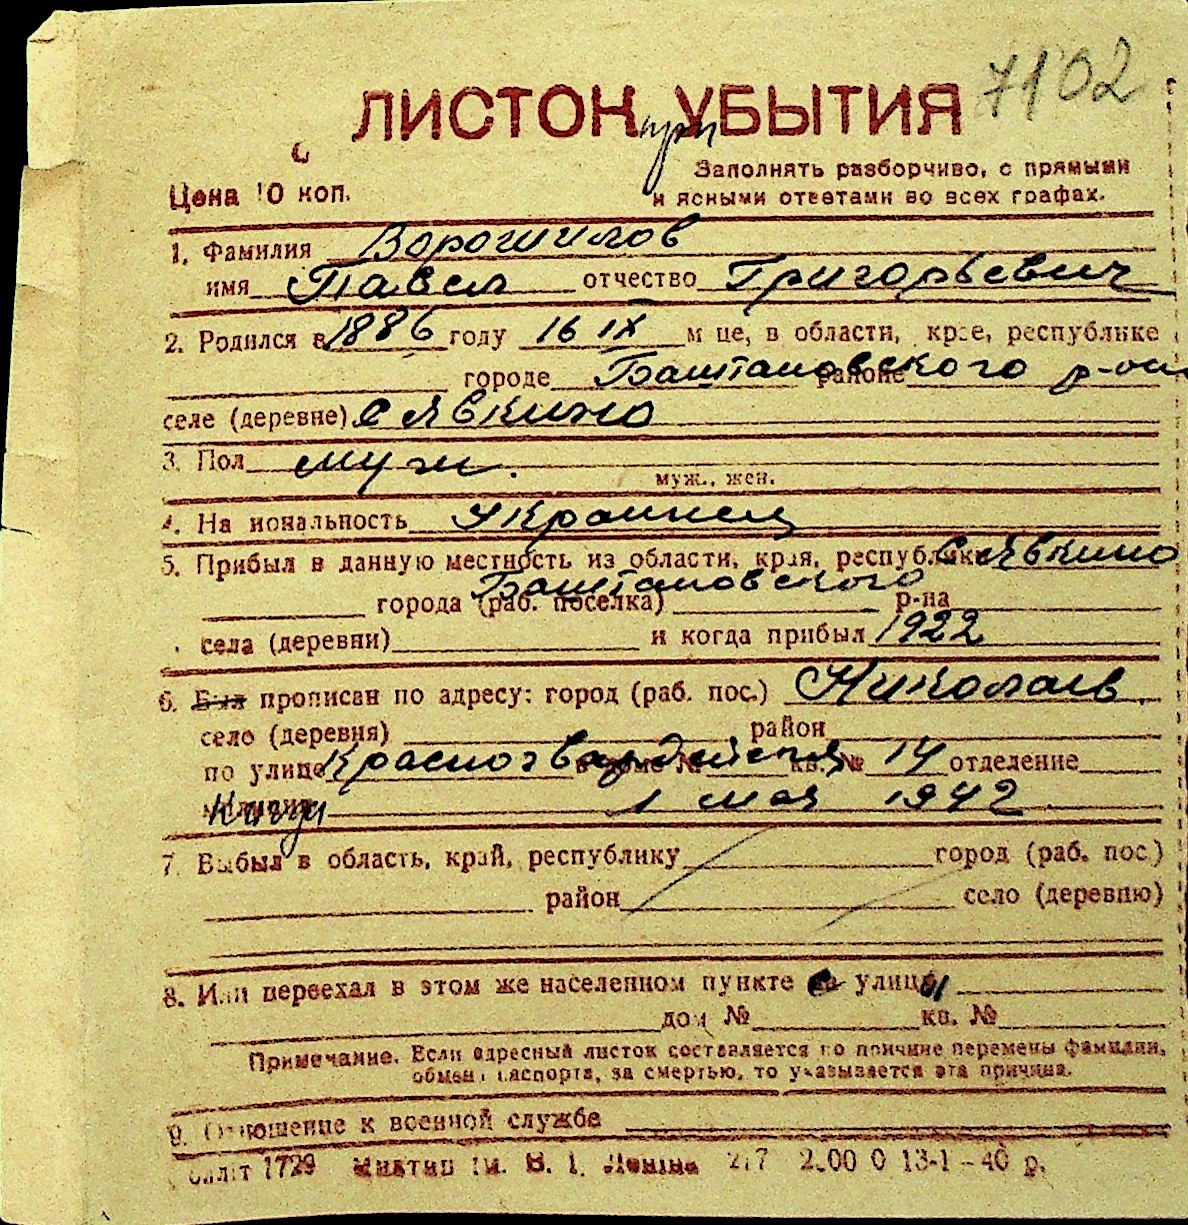 7102
ЛИСТОК УБЫТИЯ
при
Цена 10 коп.
Заполнять разборчиво, с прямыми
и ясными ответами во всех графах.
1. Фамилия Ворошилов
имя Павел отчество Григорьевич
2. Родился в 1886 году 16 IX м-це, в области, крае, республике
городе Баштановского районе р-на
селе (деревне) Явкино
3. Пол муж.
муж., жен.
4. Национальность Украинец
5. Прибыл в данную местность из области, края, республики с Явкино
Баштановского
города (раб. поселка) р-на
села (деревни) и когда прибыл 1922
6. Был прописан по адресу: город (раб. пос.) Николаев
село (деревня) район
по улице Красногвардейская в доме № кв. № 14 отделение
милиции 1 мая 1942
7. Выбыл в область, край, республику город (раб. пос.)
район село (деревню)
8. Или переехал в этом же населенном пункте с улицы
дом № кв. №
Примечание. Если адресный листок составляется по причине перемены фамилии,
обмена паспорта, за смертью, то указывается эта причина.
9. Отношение к военной службе
1729 им. В. І. Леніна 2.00 0 13-1-40 р.